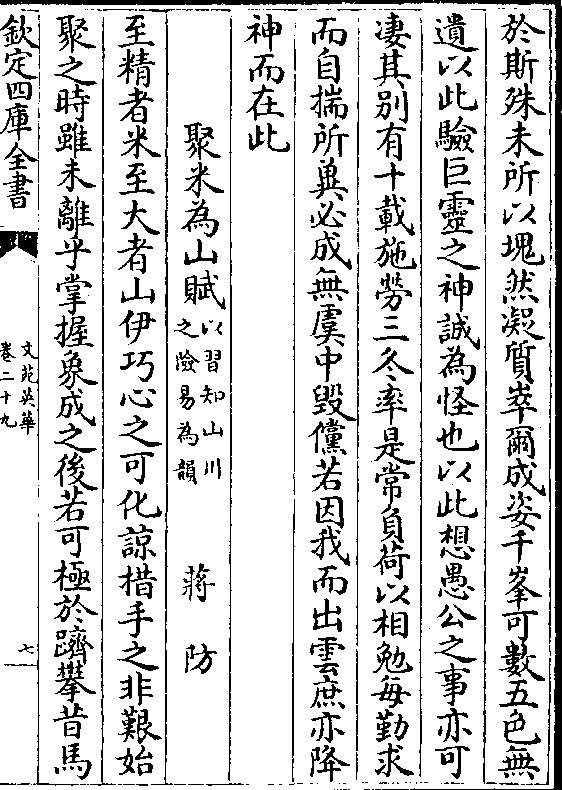 於斯殊未所以塊然凝質崒爾成姿千峯可數五色無
遺以此驗巨靈之神誠為怪也以此想愚公之事亦可
凄其别有十載施勞三冬率是常負荷以相勉每勤求
而自揣所兾必成無虞中毀儻若因我而出雲庶亦降
神而在此
聚米為山賦以習知山川之險易為韻 蔣防
至精者米至大者山伊巧心之可化諒措手之非艱始
聚之時雖未離乎掌握象成之後若可極於躋攀昔馬
欽定四庫全書
文苑英華
卷二十九
七